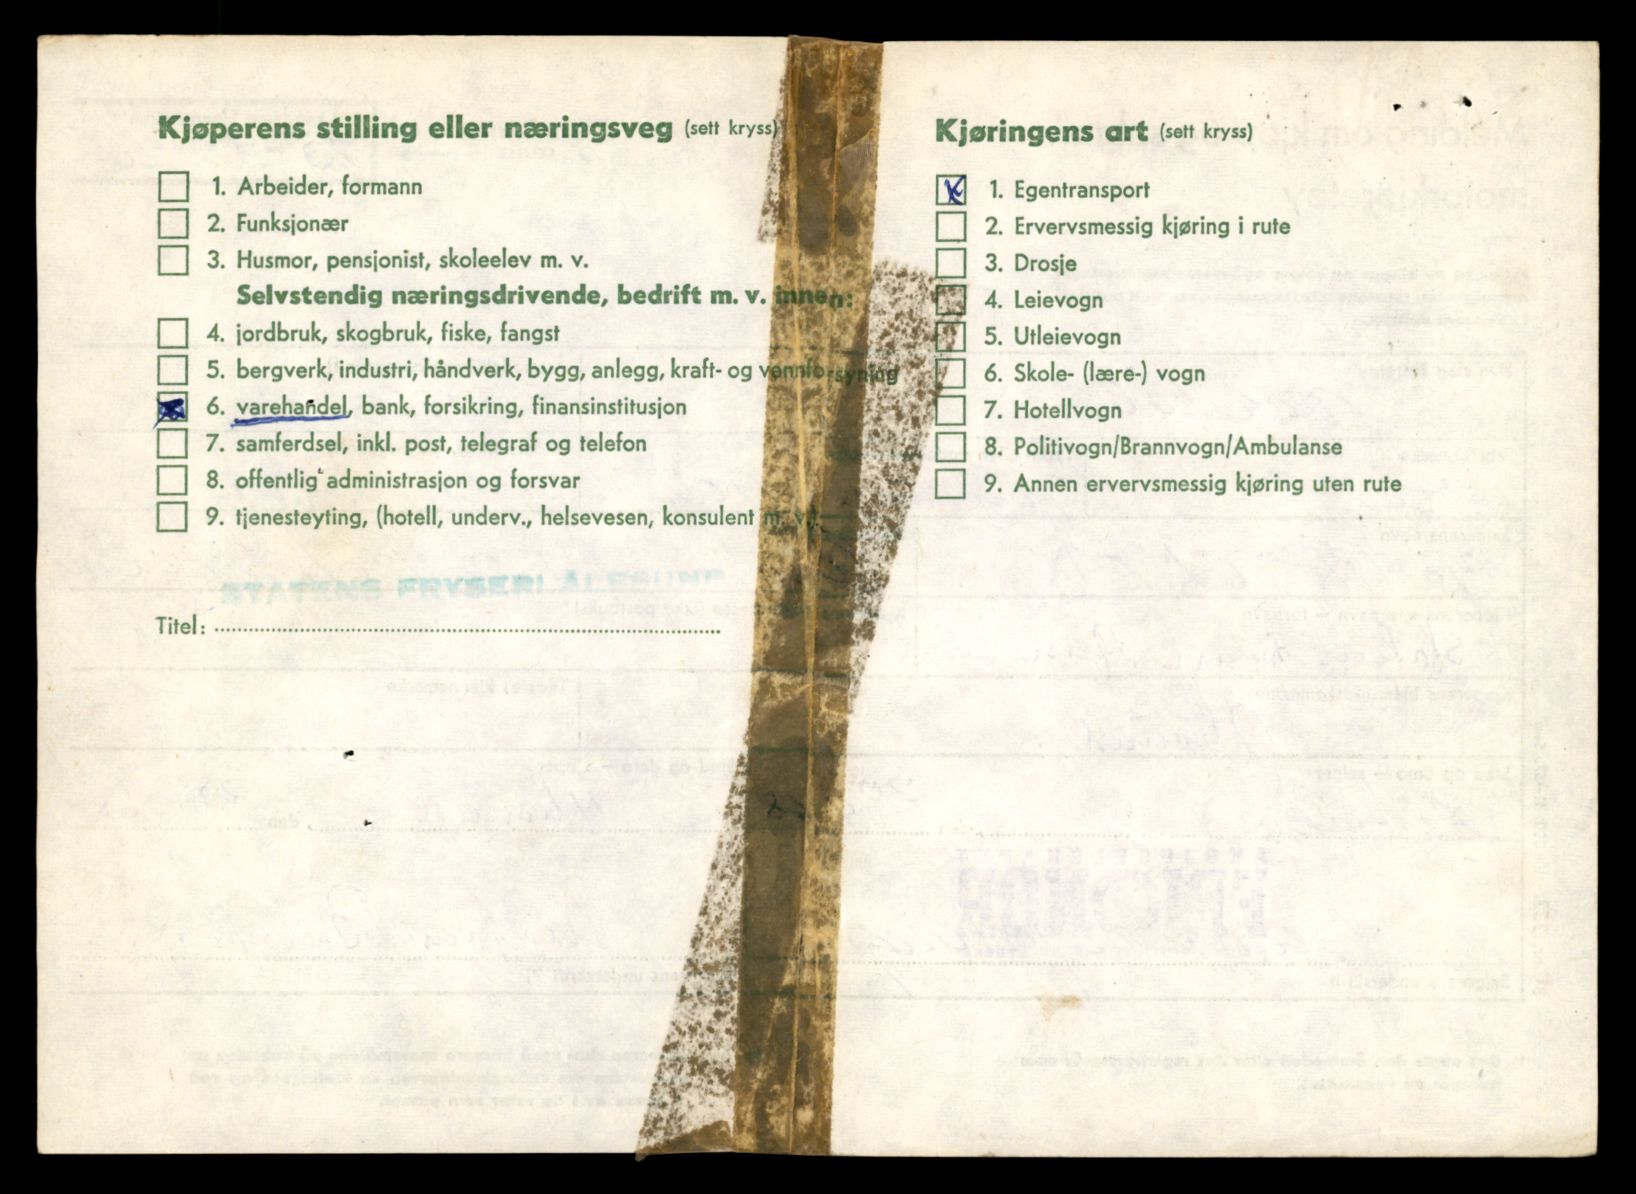 Kjøperens stilling eller næringsveg (sett kryss)
1. Arbeider, formann
2. Funksjonær
3. Husmor, pensjonist, skoleelev m. v.
Selvstendig næringsdrivende, bedrift m. v. innen:
4. jordbruk, skogbruk, fiske, fangst
5. bergverk, industri, håndverk, bygg, anlegg, kraft- og vannforsyning
6. varehandel, bank, forsikring, finansinstitusjon
7. samferdsel, inkl. post, telegraf og telefon
8. offentlig administrasjon og forsvar
9. tjenesteyting, (hotell, underv., helsevesen, konsulent m. v.)
STATENS FRYSERI ÅLESUND
Titel:
Kjøringens art (sett kryss)
1. Egentransport
2. Ervervsmessig kjøring i rute
3. Drosje
4. Leievogn
5. Utleievogn
6. Skole- (lære-) vogn
7. Hotellvogn
8. Politivogn/Brannvogn/Ambulanse
9. Annen ervervsmessig kjøring uten rute